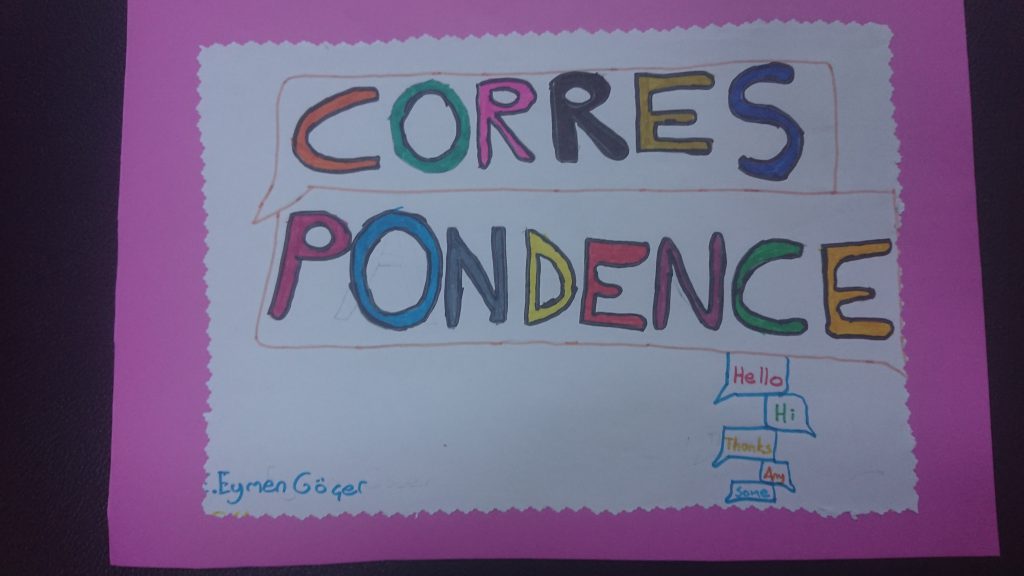 CORRES
PONDENCE
Hello
Hi
Thanks
Any
Some
Eymen Göçer